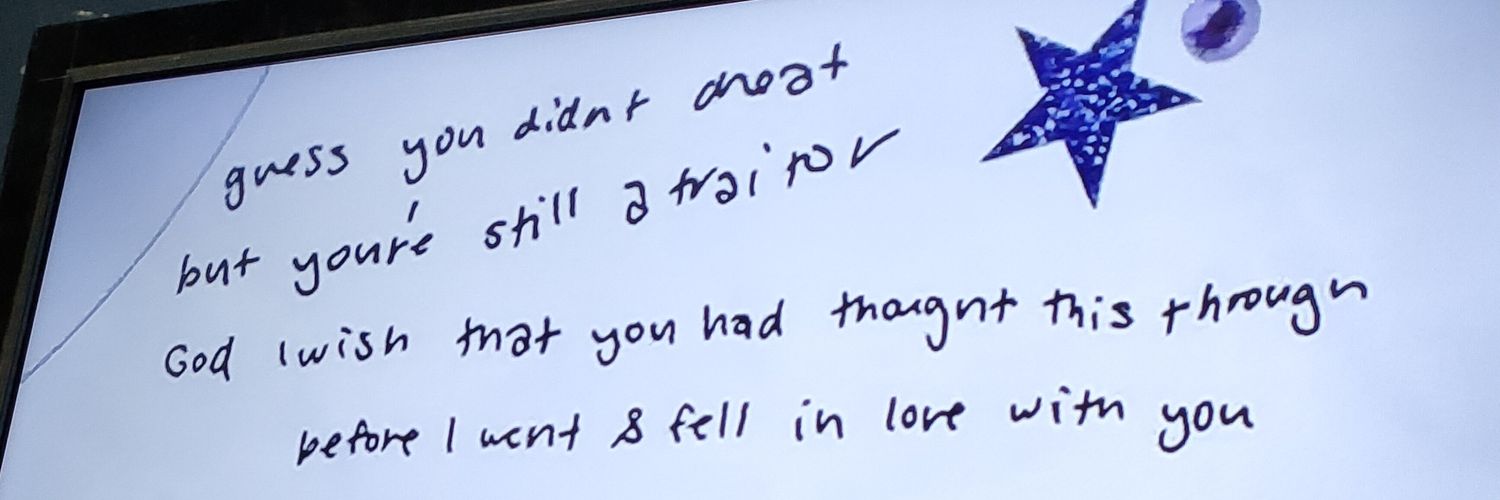 guess you didnt cheat
but you're still a traitor
God I wish that you had thought this through
before I went & fell in love with you